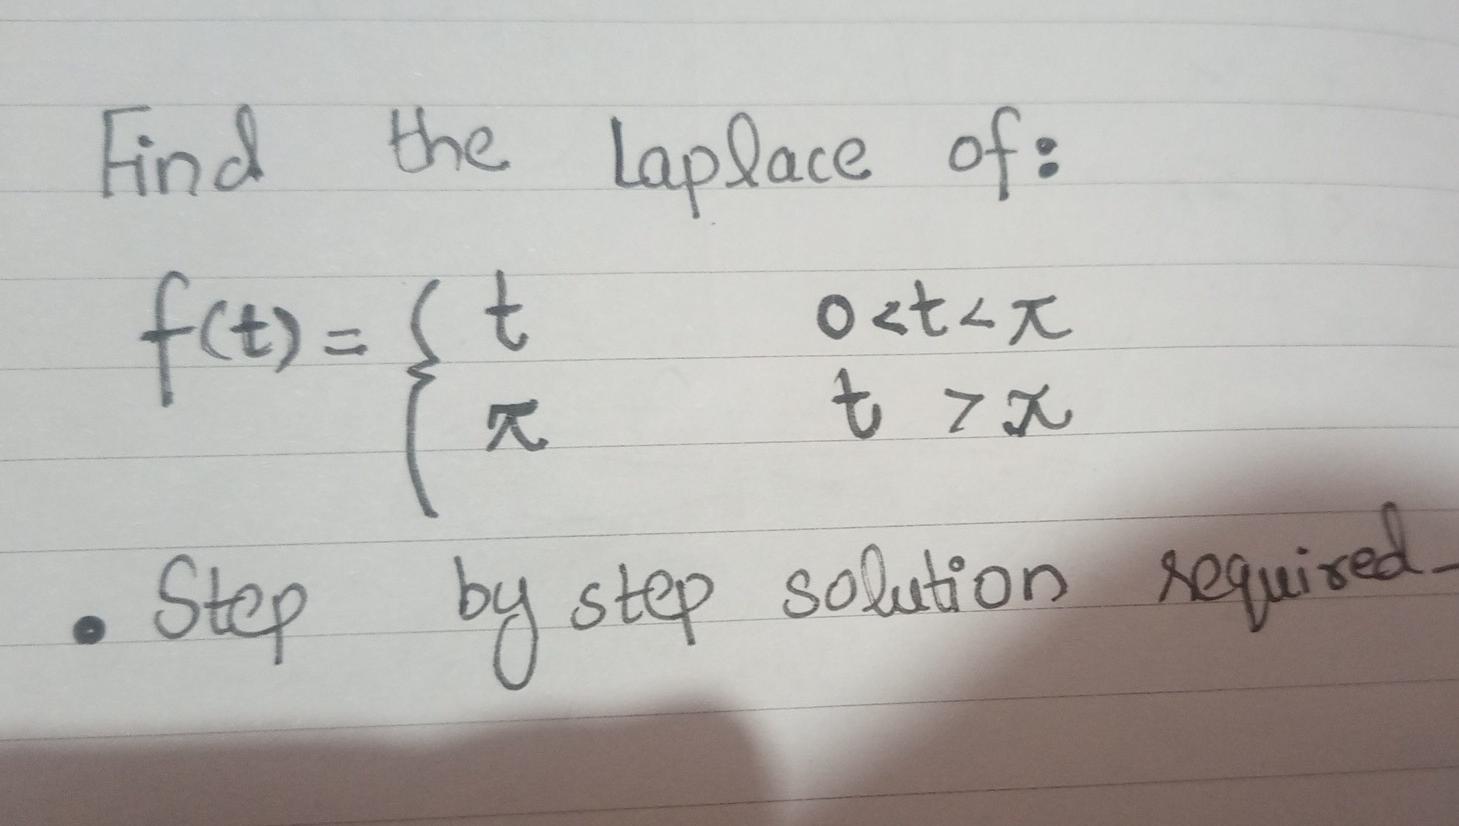 Find the Laplace of:
f(t) = { t 0<t<π
π t > π
• Step by step solution required-